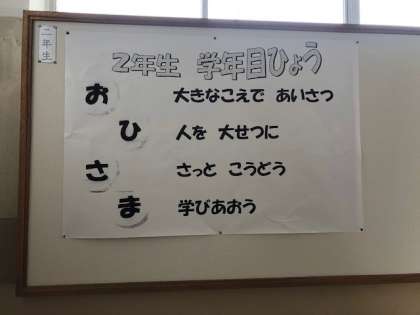 二年生
2年生 学年目ひょう
お 大きなこえで あいさつ
ひ 人を 大せつに
さ さっと こうどう
ま 学びあおう